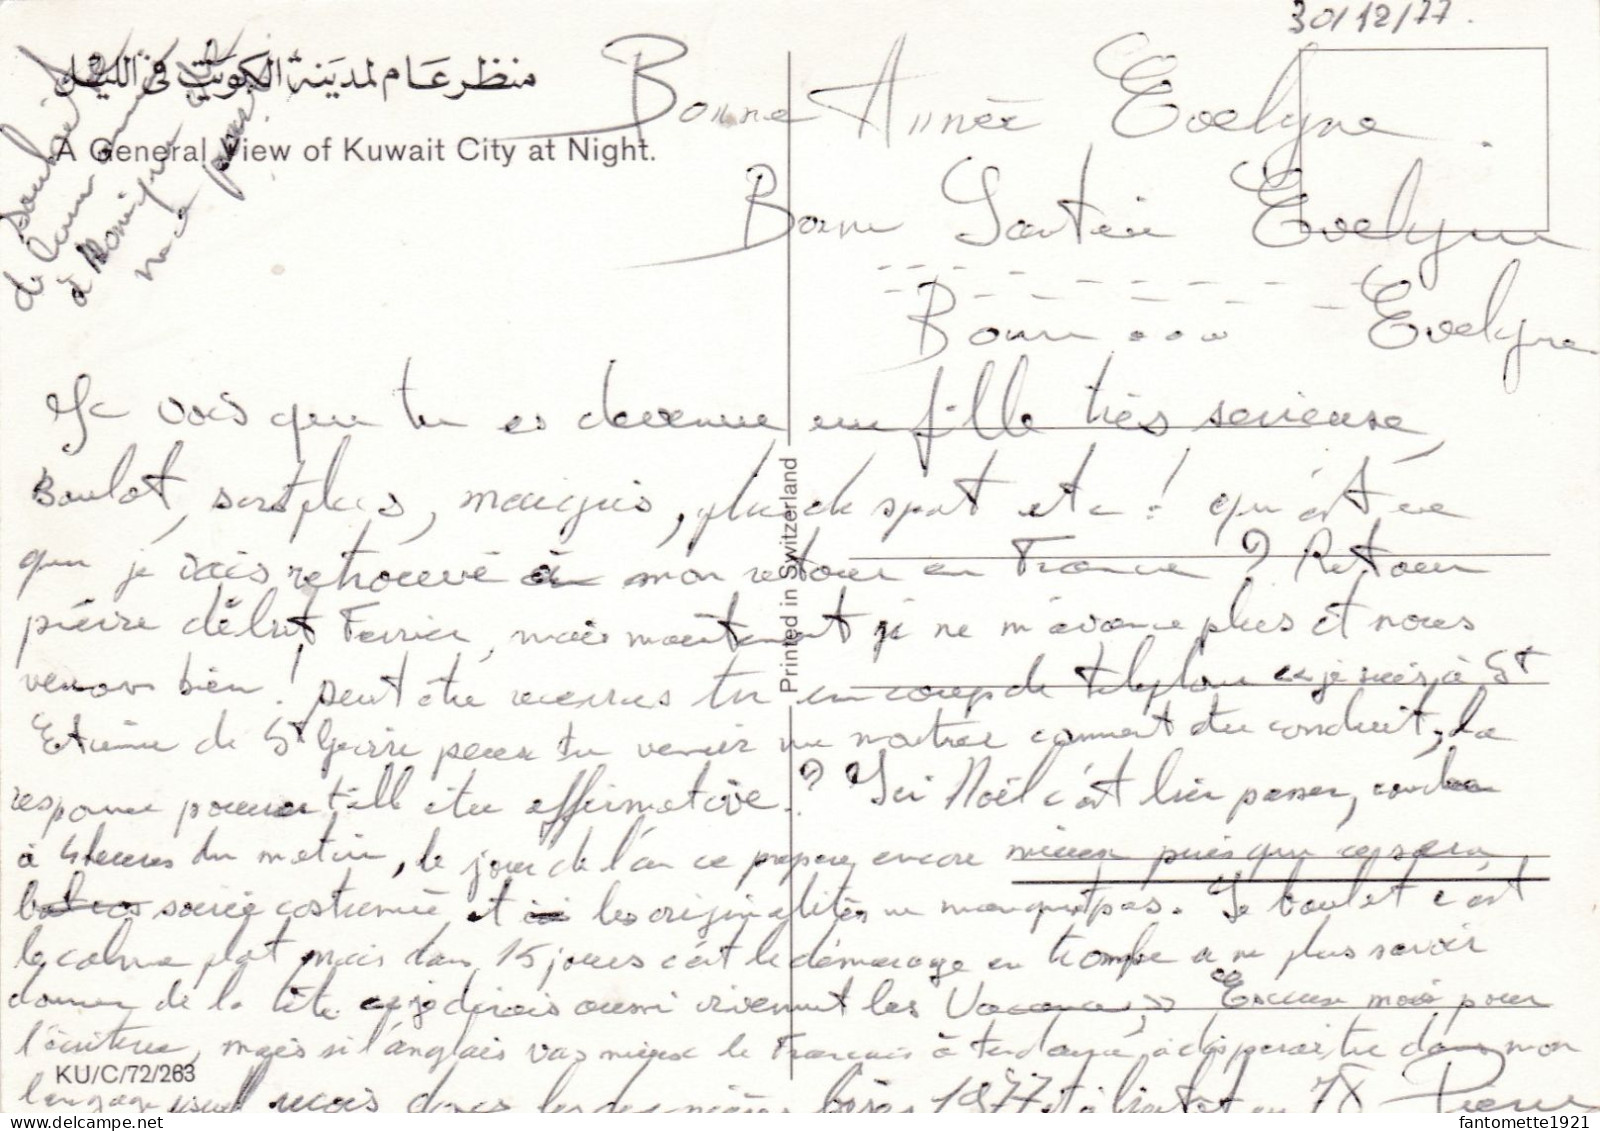 30/12/77.
منظر عام لمدينة الكويت في الليل
A General View of Kuwait City at Night.
Bonne Année Evelyne
Bonne Santée Evelyne
Bonne ... Evelyne
Je vois que tu es devenue une fille très serieuse,
Boulot, sersplus, maigris, plus de sport etc! qu'est ce
que je vais retrouvé à mon retour en France? Retour
prévue début Fevrier, mais maintenant je ne m'avance plus et nous
verrons bien! peut être recevras tu un coup de telephone je suis à St
Etienne de St Geoire peux tu venir me montrer comment tu conduit, la
reponse pourra t'ell être affirmative? Ici Noël c'est bien passer, coucher
à 4 heures du matin, le jour de l'an ce prepare encore mieux puisque ce sera
soirée costumée et les originalitées ne manquent pas. Le boulot c'est
le calme plat mais dans 15 jours c'est le démarage en trombe a ne plus savoir
donner de la tête je dirais aussi vivement les Vacances. Excuse moi pour
l'écriture, mais si l'anglais vas mieux le Francais à tendance à disparaitre dans mon
langage usuel recois donc les dernières bises 1977 et à bientot en 78 Pierre
souhait
de bonne année
à Monique
KU/C/72/263
Printed in Switzerland
fantomette1921